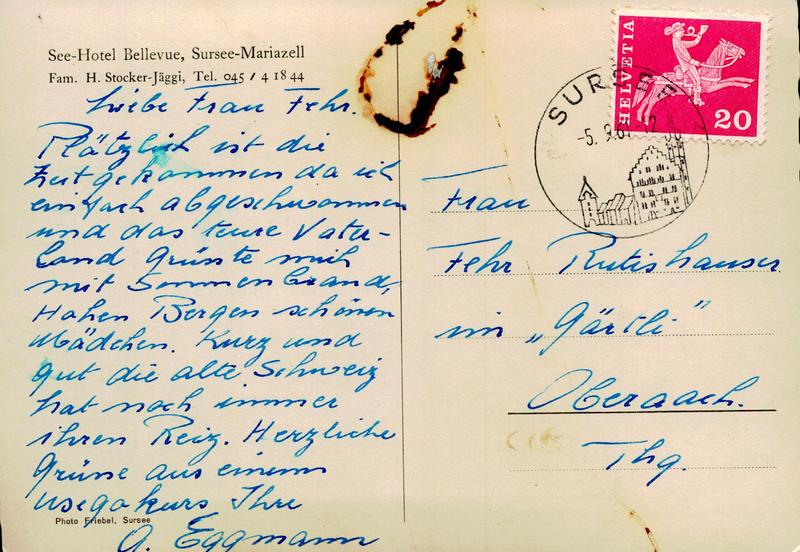 See-Hotel Bellevue, Sursee-Mariazell
Fam. H. Stocker-Jäggi, Tel. 045 / 4 18 44
Liebe Frau Fehr.
Plötzlich ist die
Zeit gekommen da ich
einfach abgeschwommen
und das teure Vater-
land Grüsste mich
mit Sonnenbrand,
Hohen Bergen schönen
Mädchen. Kurz und
gut die alte Schweiz
hat noch immer
ihren Reiz. Herzliche
Grüsse aus einem
Usegokurs Ihre
Eggmann
Photo Friebel, Sursee
HELVETIA
20
SURSEE
-5. 9.6
Frau
Fehr Rutishauser
im „Gärtli"
Oberaach.
Thg.